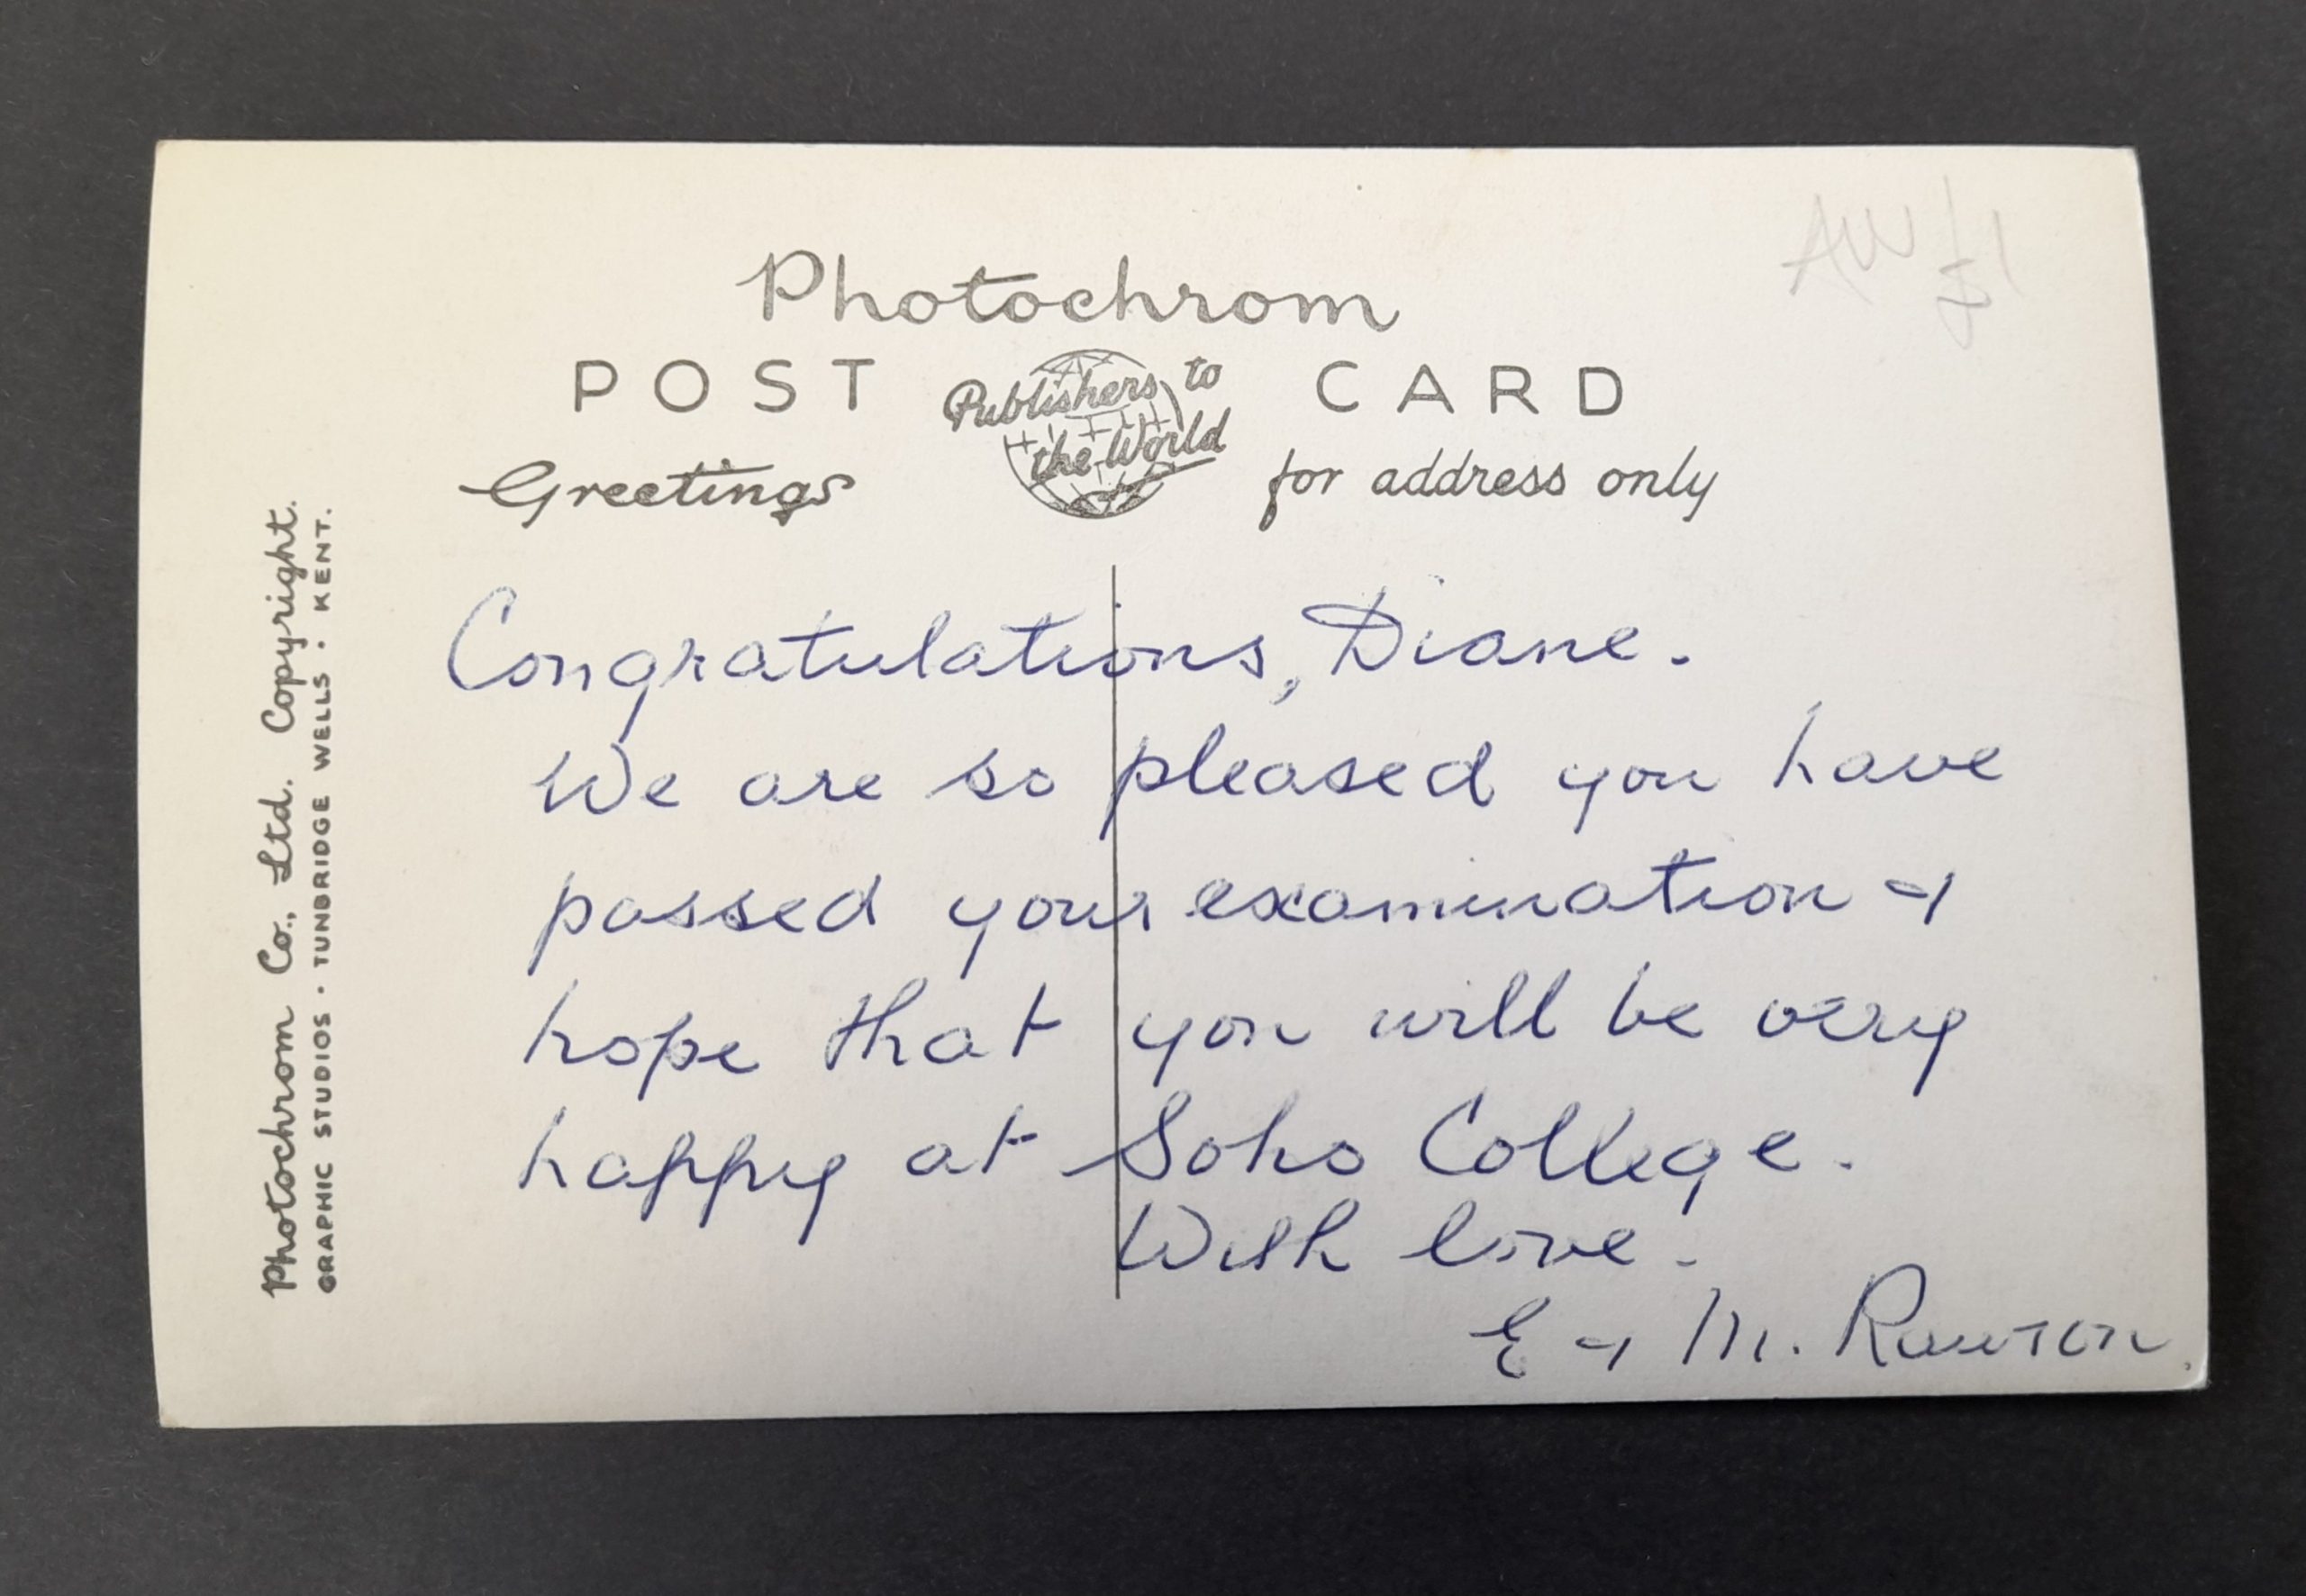 Photochrom
POST CARD
Publishers to
the World
Greetings
for address only
Congratulations, Diane.
We are so pleased you have
passed your examination &
hope that you will be very
happy at Soho College.
With love.
E & M. Rawson.
Photochrom Co., Ltd. Copyright.
GRAPHIC STUDIOS · TUNBRIDGE WELLS · KENT.